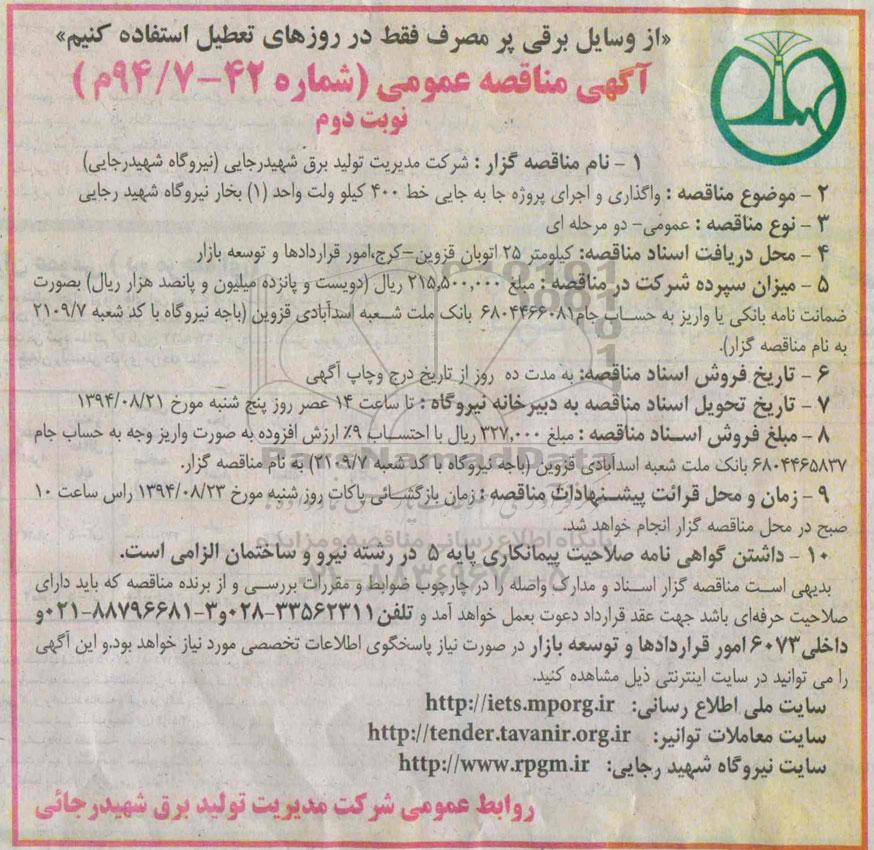 «از وسایل برقی پر مصرف فقط در روزهای تعطیل استفاده کنیم»
آگهی مناقصه عمومی (شماره ۴۲-۹۴/۷م)
نوبت دوم
۱ - نام مناقصه گزار : شرکت مدیریت تولید برق شهیدرجایی (نیروگاه شهیدرجایی)
۲ - موضوع مناقصه : واگذاری و اجرای پروژه جا به جایی خط ۴۰۰ کیلو ولت واحد (۱) بخار نیروگاه شهید رجایی
۳ - نوع مناقصه : عمومی- دو مرحله ای
۴ - محل دریافت اسناد مناقصه: کیلومتر ۲۵ اتوبان قزوین-کرج،امور قراردادها و توسعه بازار
۵ - میزان سپرده شرکت در مناقصه : مبلغ ۲۱۵,۵۰۰,۰۰۰ ریال (دویست و پانزده میلیون و پانصد هزار ریال) بصورت
ضمانت نامه بانکی یا واریز به حساب جام۶۸۰۴۴۶۶۰۸۱ بانک ملت شعبه اسدآبادی قزوین (باجه نیروگاه با کد شعبه ۲۱۰۹/۷
به نام مناقصه گزار).
۶ - تاریخ فروش اسناد مناقصه: به مدت ده روز از تاریخ درج وچاپ آگهی
۷ - تاریخ تحویل اسناد مناقصه به دبیرخانه نیروگاه : تا ساعت ۱۴ عصر روز پنج شنبه مورخ ۱۳۹۴/۰۸/۲۱
۸ - مبلغ فروش اسناد مناقصه : مبلغ ۳۲۷,۰۰۰ ریال با احتساب ۹٪ ارزش افزوده به صورت واریز وجه به حساب جام
۶۸۰۴۴۶۵۸۳۷ بانک ملت شعبه اسدآبادی قزوین (باجه نیروگاه با کد شعبه ۲۱۰۹/۷) به نام مناقصه گزار.
۹ - زمان و محل قرائت پیشنهادات مناقصه : زمان بازگشائی پاکات روز شنبه مورخ ۱۳۹۴/۰۸/۲۳ راس ساعت ۱۰
صبح در محل مناقصه گزار انجام خواهد شد.
۱۰ - داشتن گواهی نامه صلاحیت پیمانکاری پایه ۵ در رشته نیرو و ساختمان الزامی است.
بدیهی است مناقصه گزار اسناد و مدارک واصله را در چارچوب ضوابط و مقررات بررسی و از برنده مناقصه که باید دارای
صلاحیت حرفه‌ای باشد جهت عقد قرارداد دعوت بعمل خواهد آمد و تلفن۳۳۵۶۲۳۱۱-۰۲۸و۳-۸۸۷۹۶۶۸۱-۰۲۱و
داخلی۶۰۷۳ امور قراردادها و توسعه بازار در صورت نیاز پاسخگوی اطلاعات تخصصی مورد نیاز خواهد بود.و این آگهی
را می توانید در سایت اینترنتی ذیل مشاهده کنید.
سایت ملی اطلاع رسانی: http://iets.mporg.ir
سایت معاملات توانیر: http://tender.tavanir.org.ir
سایت نیروگاه شهید رجایی: http://www.rpgm.ir
روابط عمومی شرکت مدیریت تولید برق شهیدرجائی
ParsNamadData
پایگاه اطلاع رسانی مناقصه و مزایده